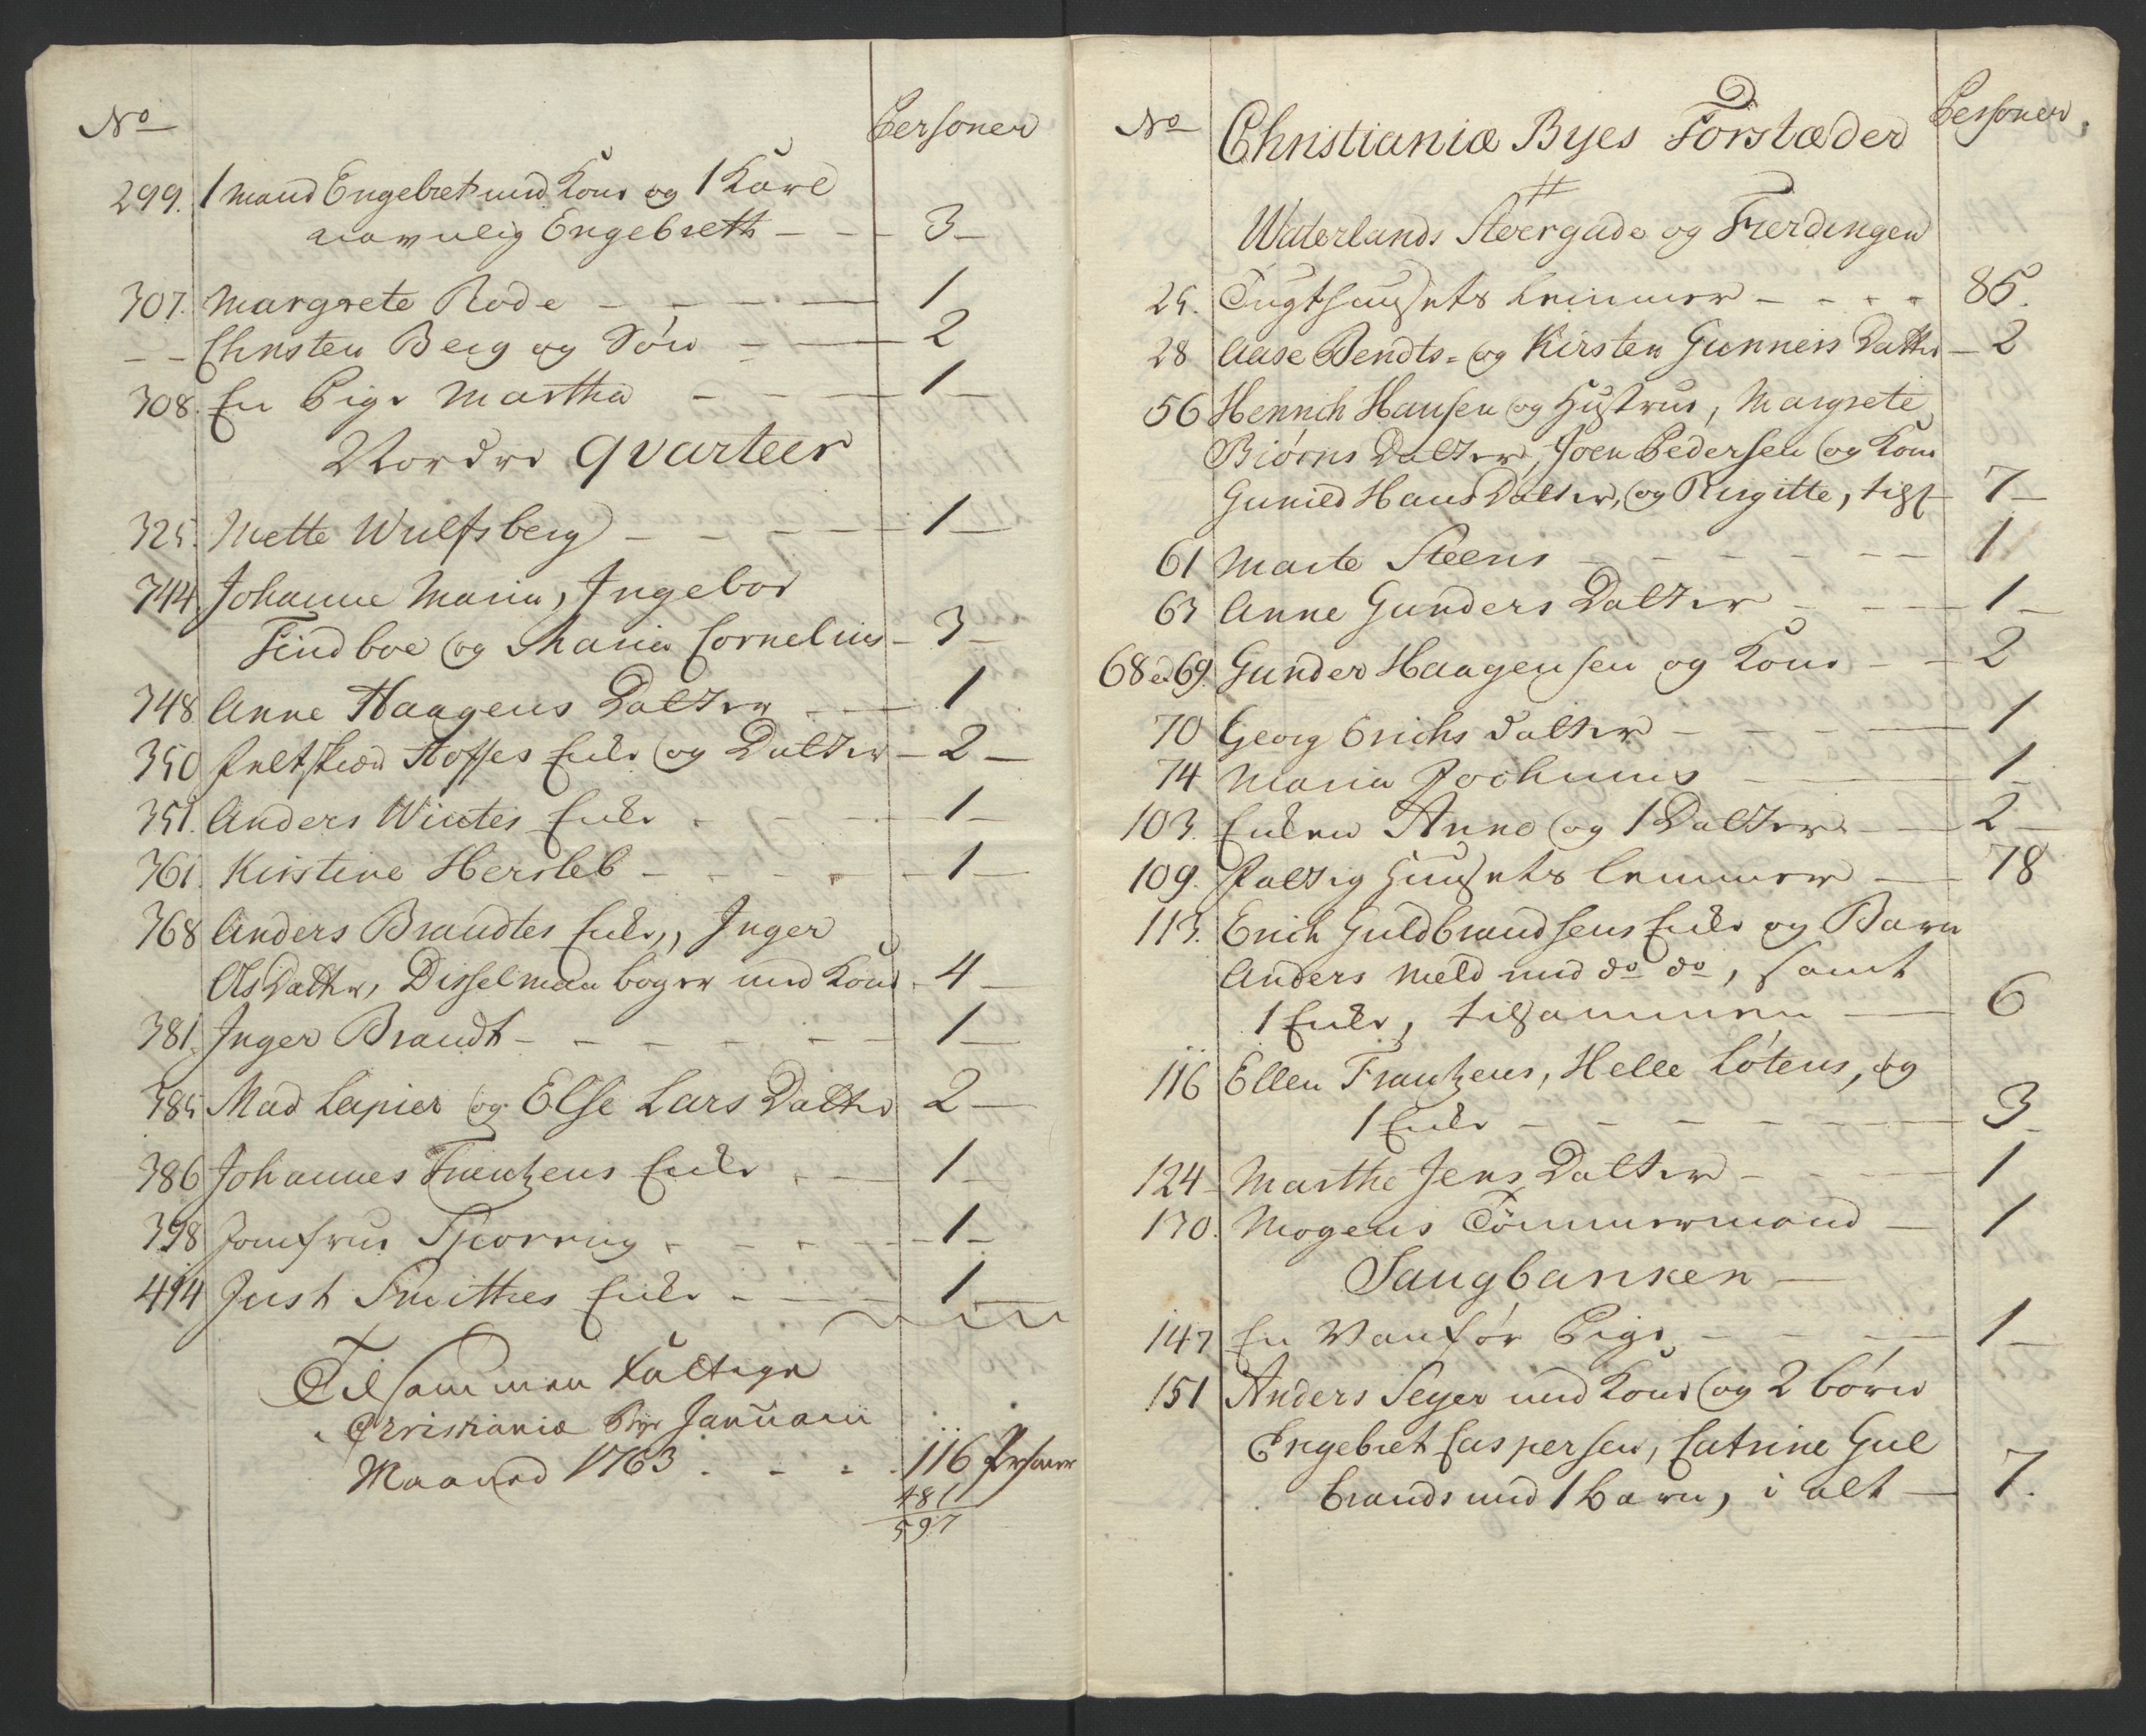 No Personer
299. 1 Mand Engebret med Kone og 1 Karl
navnlig Engebreth - - 3 -
307. Margrete Rode - - - - 1
- - Christen Berg og Søn - - 2
308. En Pige Martha - - - 1 -
Nordre Qvarteer
325. Mette Wulfsberg - - - - 1 -
344 Johanne Maria, Ingebor
Findboe og Maria Cornelius - 3 -
348 Anne Haagens Datter - - 1
350 Hoffes Enke og Datter - 2 -
351. Anders Winters Enke - - - 1 -
361. Kirstine Hersleb - - - - 1 -
368 Anders Brandtes Enke, Inger
Ols Datter, Disselman Boger med Kone - 4 -
381. Inger Brandt - - - - - - 1 -
385 Mad Lapier og Else Lars Datter 2 -
386 Johannes Frentzens Enke - - 1 -
398 Jomfrue Sporring - - - - 1 -
414 Just Smithes Enke - - - 1
Tilsammen Fattige
Christianiæ Bye Januarii
Maaned 1763 - - - 116 Personer
481
597
No Christianiæ Byes Forstæder Personer
Waterlands Stoergade og Fierdingen
25. Tugthusets Lemmer - - - - 85.
28 Aase Bendts- og Kirsten Gunners Datter - 2
56 Henrich Hansen og Hustrue, Margrete
Biørns Datter, Joen Pedersen og Kone
Gunild Hans Datter, og Birgitte, tils. 7 -
61 Marte Steens - - - - - 1
63 Anne Gunders Datter - - - 1 -
68 & 69. Gunder Haagensen og Kone - - 2
70 Georg Erichs Datter - - - - 1
74 Maria Jochums - - 1 -
103. Enken Anne og 1 Datter - 2 -
109. Fattig Husets Lemmer - 78
113. Erich Guldbrandsens Enke og Barn
Anders Meld med do do, samt
1 Enke, tilsammen - 6
116 Ellen Frantzens, Helle Lótens, og
1 Enke - - - - - - 3 -
124 - Marthe Jens Datter - - - - 1
130. Mogens Tømmermand - 1
Saugbanken -
147 En Vanfør Pige - - - - 1 -
151 Anders Seyer med Kone og 2 børn
Engebret Caspersen, Catrine Gul
brands med 1 barn, i alt - 7.